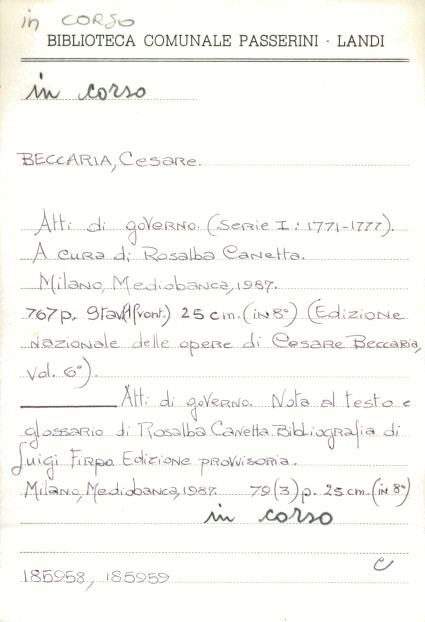 in CORSO
BIBLIOTECA COMUNALE PASSERINI - LANDI
in corso
BECCARIA, Cesare.
Atti di governo. (Serie I: 1771-1777).
A cura di Rosalba Canetta.
Milano, Mediobanca, 1987.
767 p. 9 tav. (1 front.) 25 cm. (in 8°) (Edizione
nazionale delle opere di Cesare Beccaria,
vol. 6°).
Atti di governo. Nota al testo e
glossario di Rosalba Canetta. Bibliografia di
Luigi Firpo. Edizione provvisoria.
Milano, Mediobanca, 1987. 79 (3) p. 25 cm. (in 8°)
in corso
185958, 185959